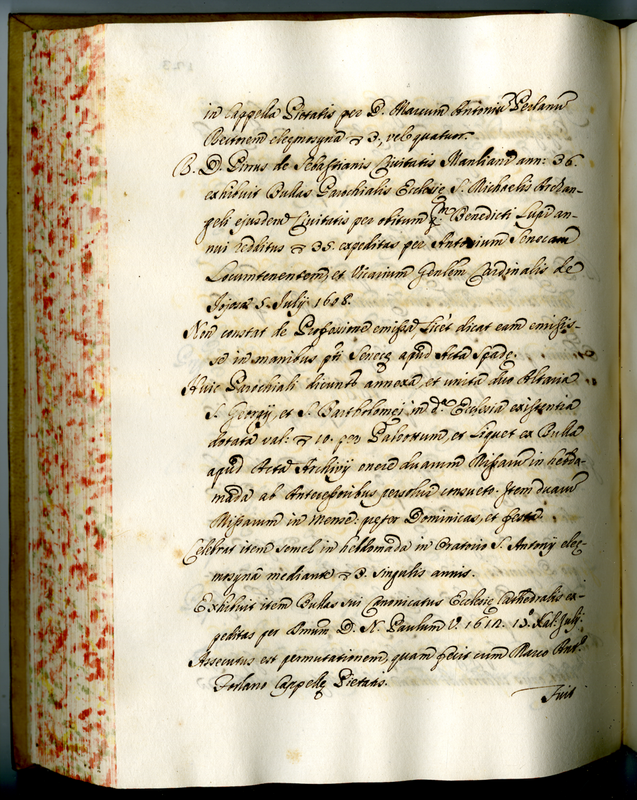 in Cappella Pietatis per D. Marcum Antoniũ Perlanũ
Rectorem eleemosyna ∇ 3, vel quatuor.
R. D. Pinus de Sebastianis Civitatis Mantiand ann: 36.
exhibuit Bullas Parochialis Ecclesię S. Michaelis Archan-
geli ejusdem Civitatis per obitum qm. Benedicti Lupi an-
nui redditus ∇ 35 expeditas per Antonium Senecam
Locumtenentem, et Vicarium Gen̄lem Cardinalis de
Joiosa 5. Julij 1608
Non constat de Professione emissa licet dicat eam emisis-
se in manibus q̄ti Senecę apud Acta Spadę.
Huic Parochiali dicunt annexa, et unita duo Altaria
S. Georgij, et S. Bartholomei in d.ᵃ Ecclesia existentia
dotata val: ∇ 10. per et liquet ex Bulla
apud Acta Archivij onere duarum Missarum in hebdo-
mada ab Antecessoribus persolvi consueto. Item duarũ
Missarum in Mense pręter Dominicas, et festa.
Celebrat item semel in hebdomada in Oratorio S. Antonij elee-
mosynâ mediante ∇ 3. singulis annis.
Exhibuit item Bullas sui Canonicatus Ecclesię Cathedralis ex-
peditas per Smum D. N. Paulum V. 1612. 13. Kal: Julij.
Assecutus est permutationem, quam fecit cum Marco Ant.º
Forlano Cappellę Pietatis.
Fuit